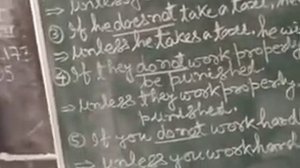 ⇒ unless
③ If he does not take a taxi, he
⇒ unless he takes a taxi, he wi
④ If they do not work properly
be punished.
⇒ unless they work properly
punished.
⑤ If you do not work hard
⇒ unless you work hard
177